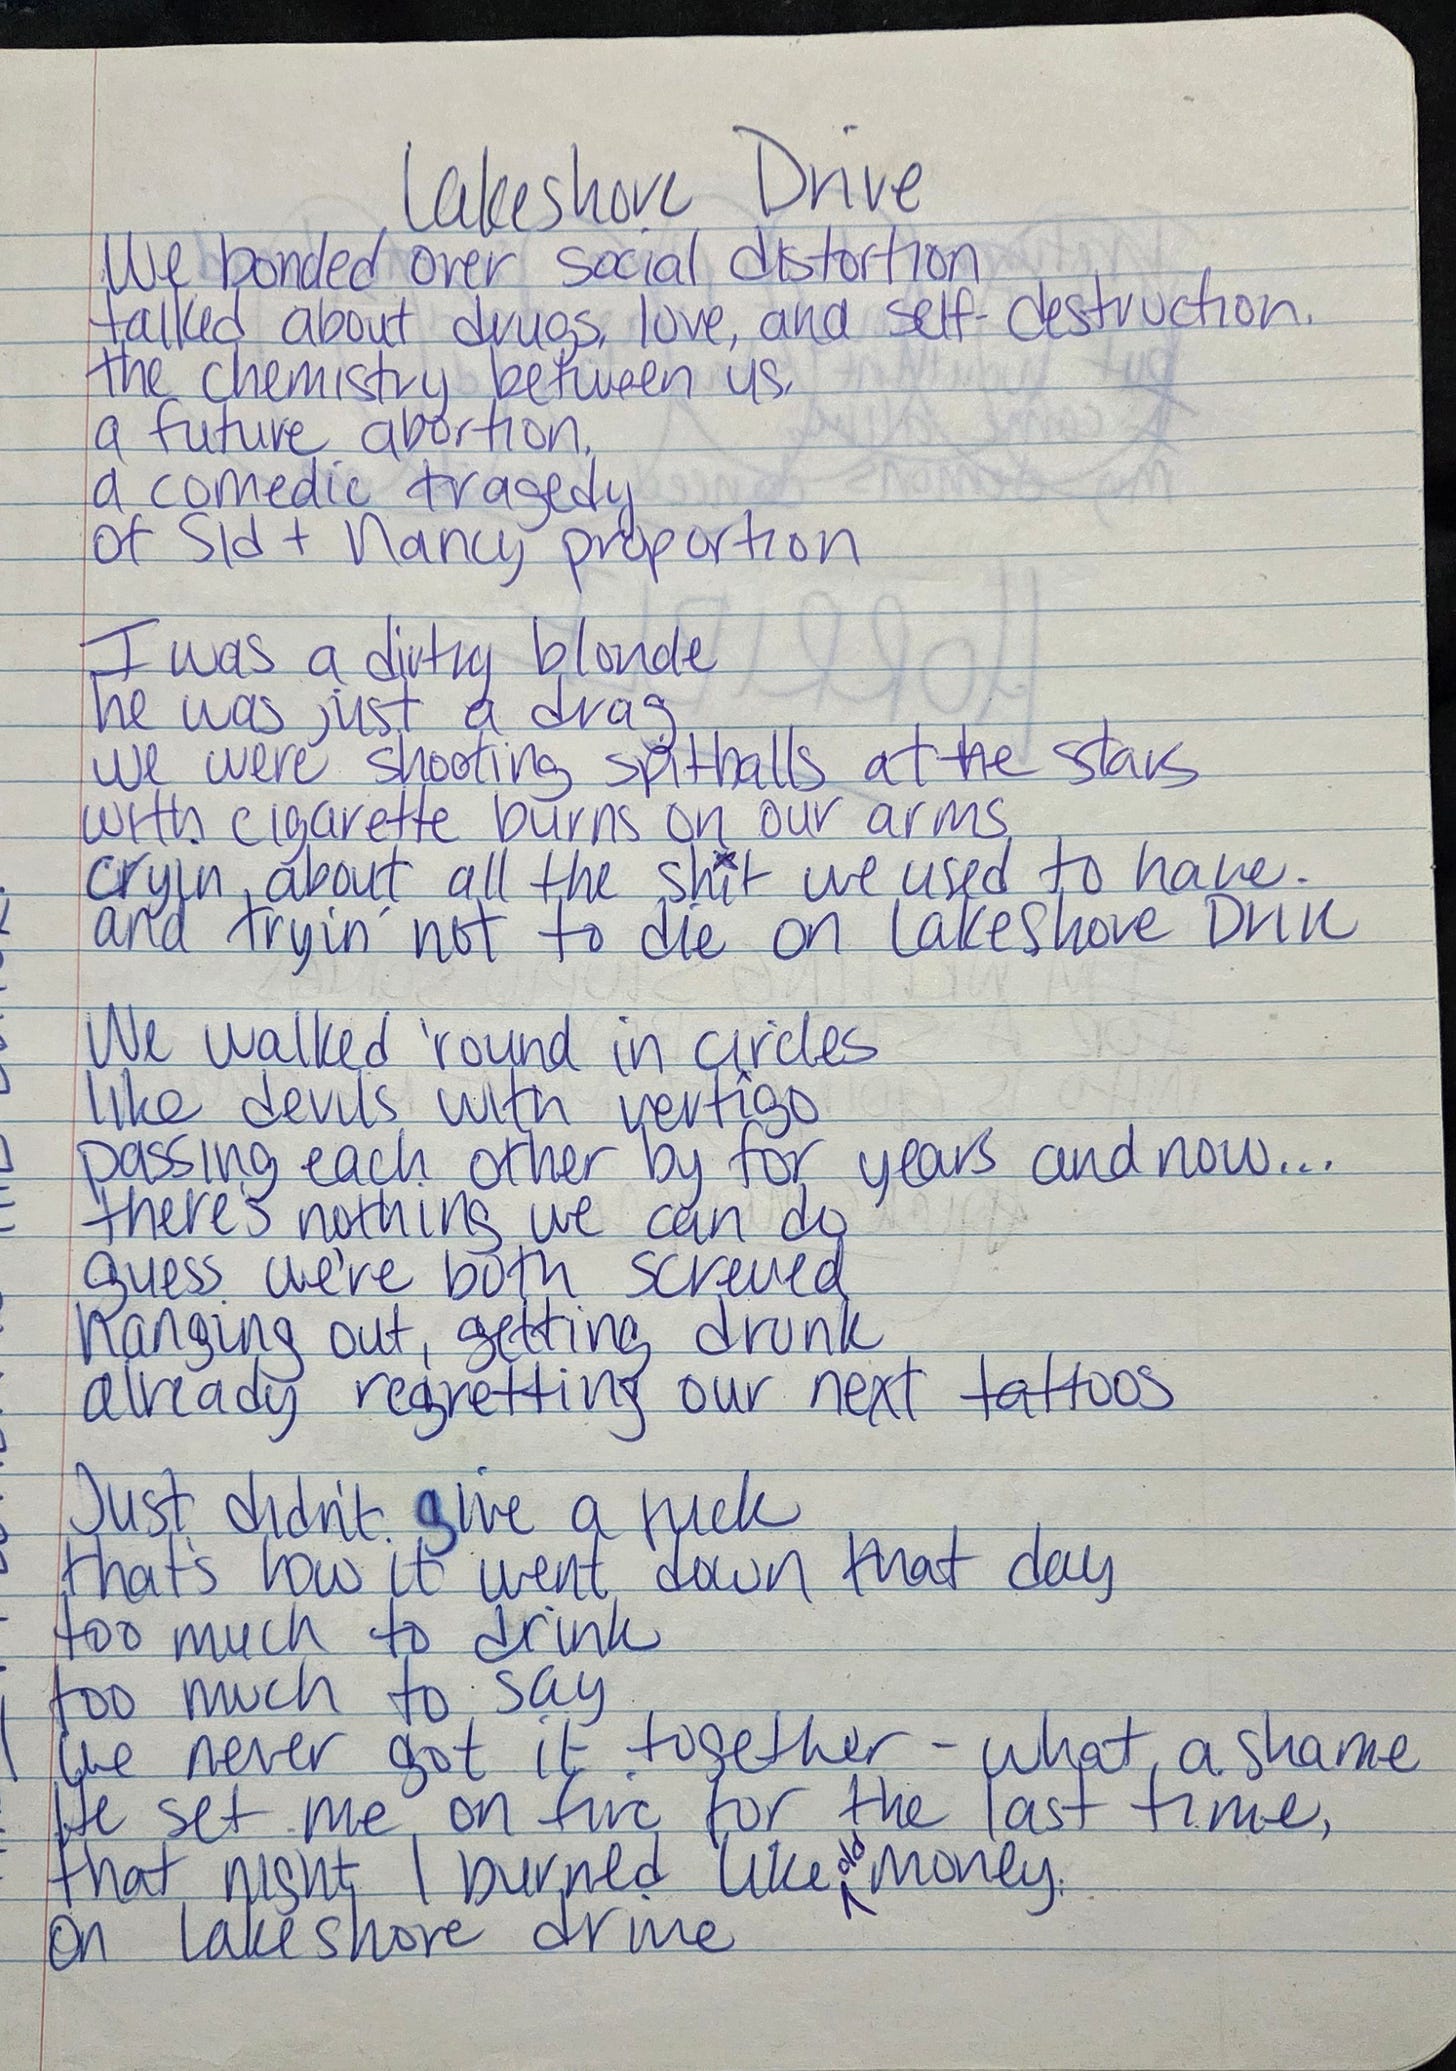 Lakeshore Drive
We bonded over social distortion
talked about drugs, love, and self-destruction.
the chemistry between us,
a future abortion,
a comedic tragedy
of Sid + Nancy proportion
I was a dirty blonde
he was just a drag
we were shooting spitballs at the stars
with cigarette burns on our arms
cryin about all the shit we used to have.
and tryin' not to die on Lakeshore Drive
We walked 'round in circles
like devils with vertigo
passing each other by for years and now...
there's nothing we can do
guess we're both screwed
hanging out, getting drunk
already regretting our next tattoos
Just didn't give a fuck
that's how it went down that day
too much to drink
too much to say
we never got it together - what a shame
He set me on fire for the last time,
that night I burned like old money.
on lakeshore drive